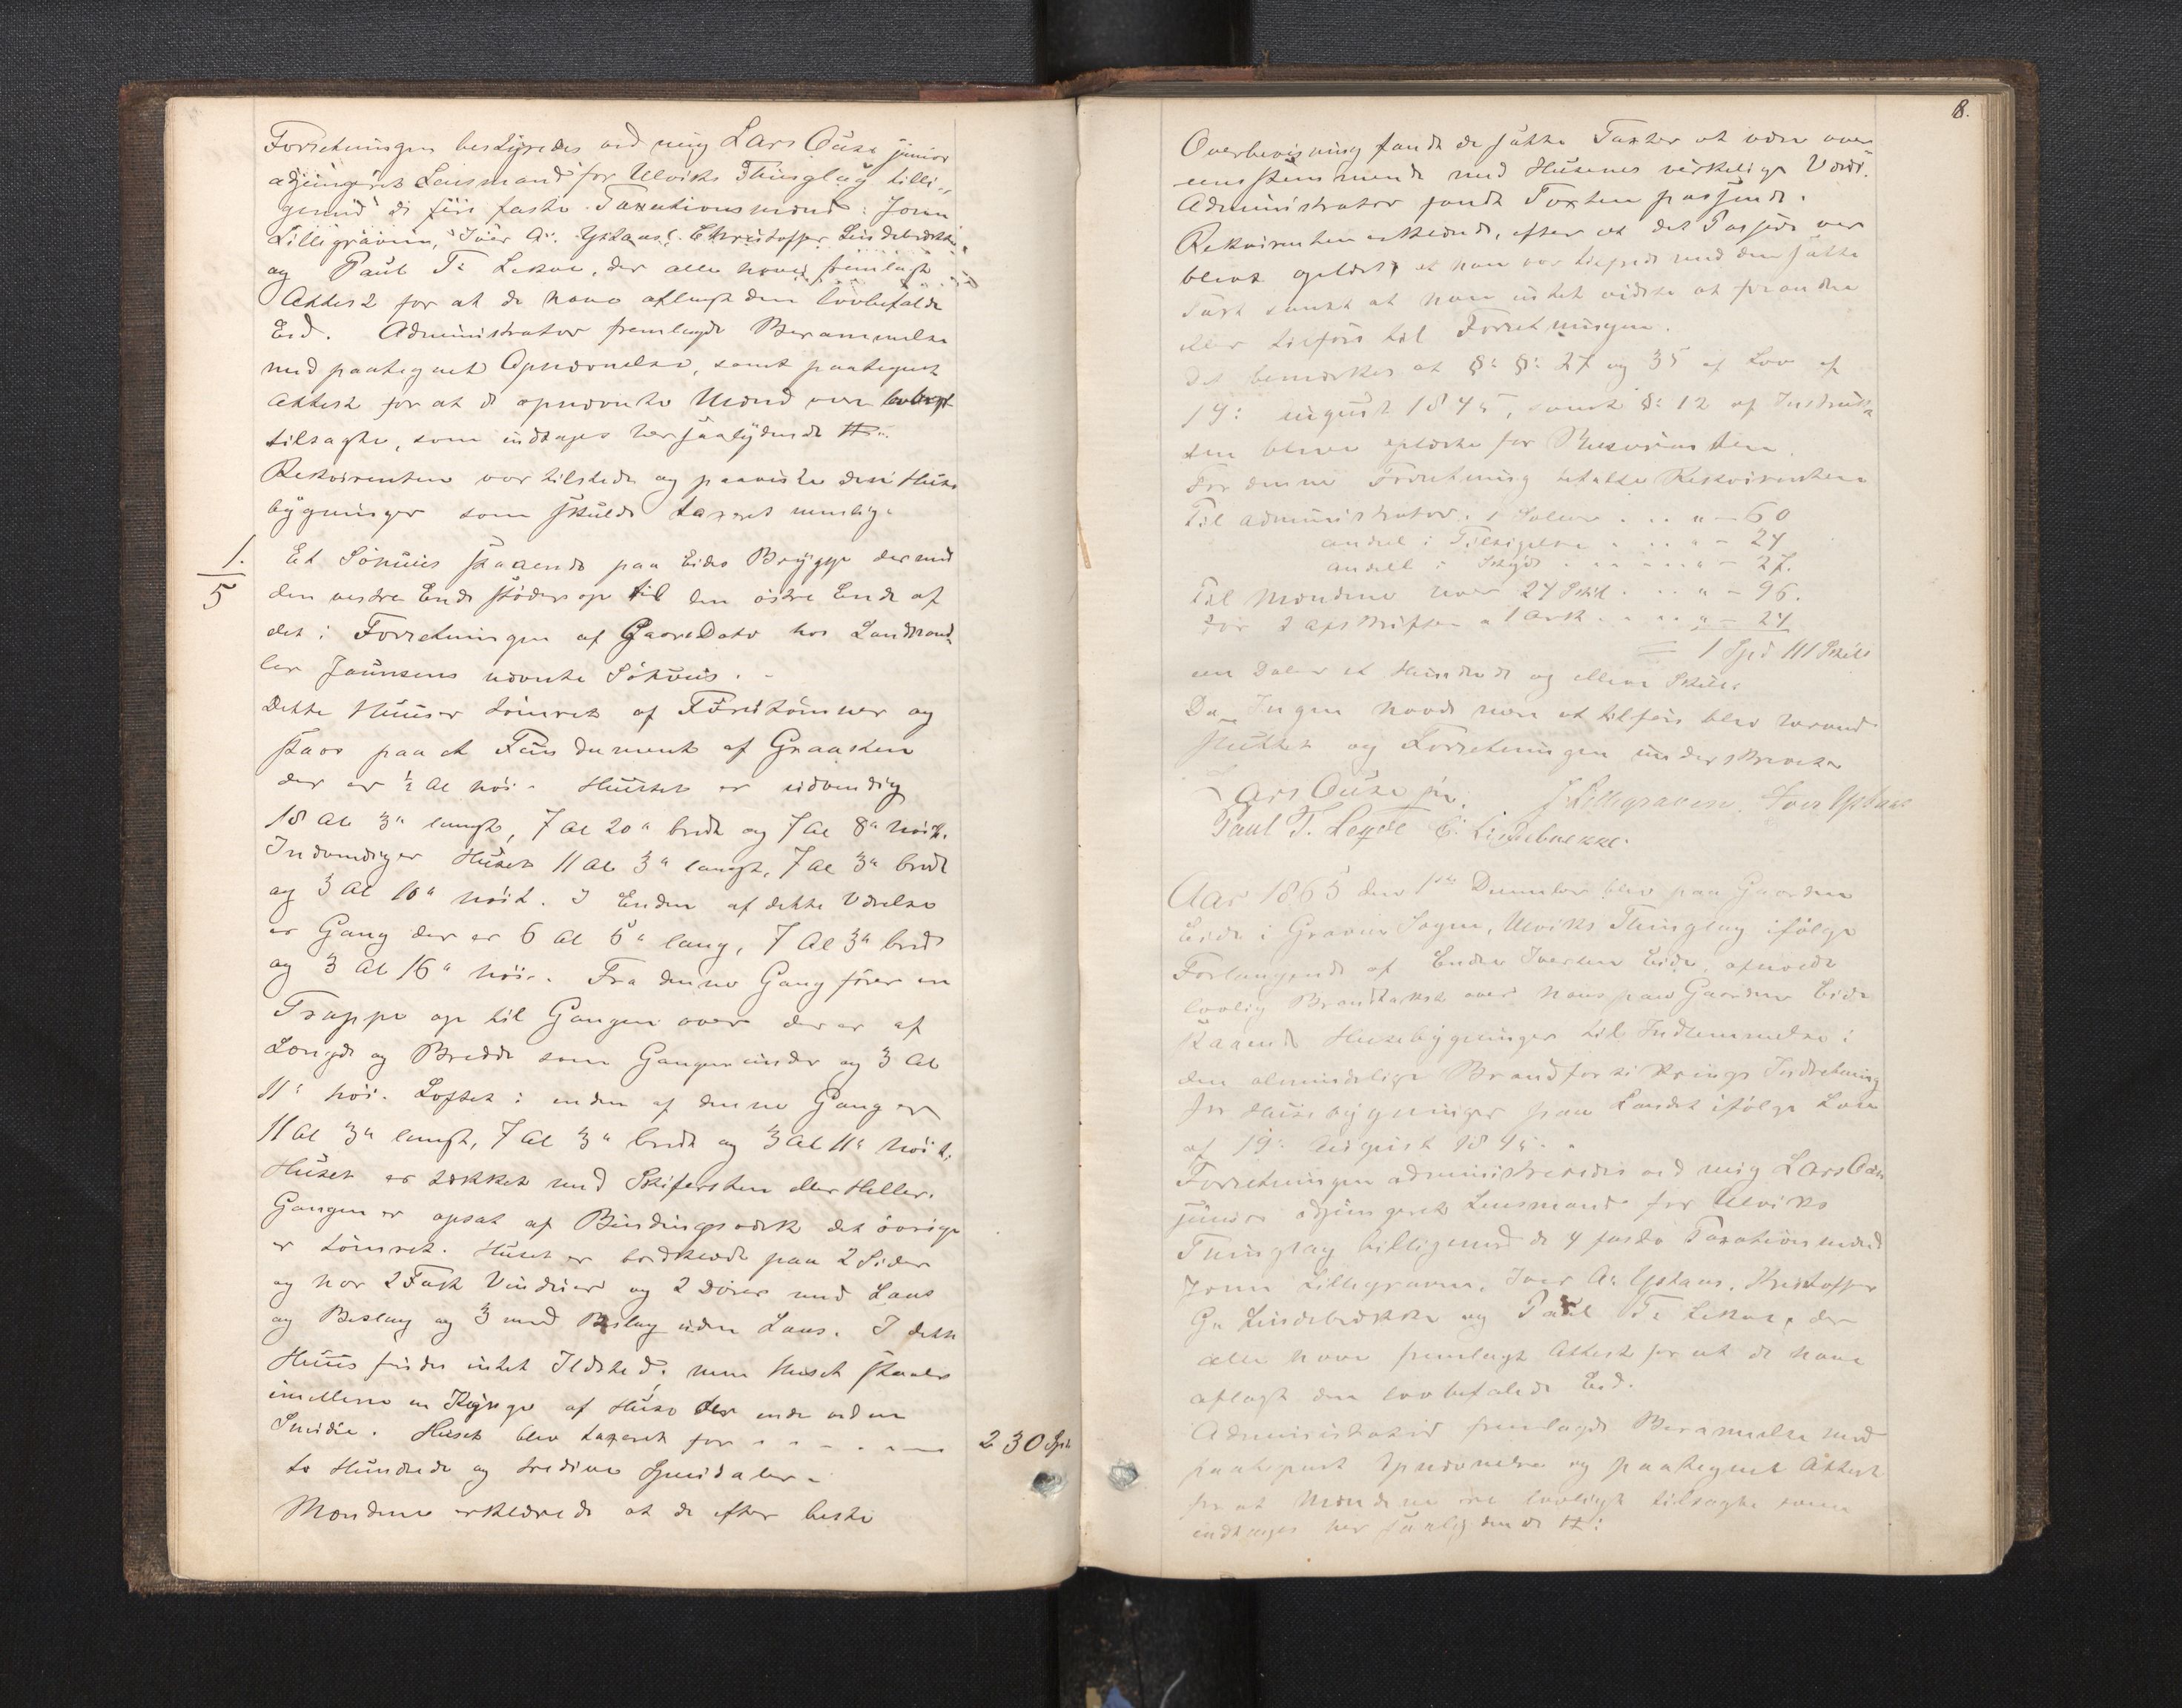 Forretningen bestyredes ved mig Lars Ouse junior
adjungeret Lensmand for Ulviks Thinglag tilli-
gemed de fiire faste Taxationsmænd: John
Lillegraven, Iver A. Ystaas, Christoffer Lindebrække
og Paul T. Lekve, der alle have fremlagt
Attest for at de have aflagt den lovbefalede
Eed. Administrator fremlagde Berammelse
med paategnet Opnævnelse, samt paategnet
Attest for at de opnævnte Mænd ere lovligt
tilsagte, som indtages her saalydende #:
Rekvirenten var tilstede og paaviste den Huse
bygninger som skulde taxeres nemlig:
1.
5
Et Söhuus staaende paa Eides Brygge der med
den vestre Ende stöder op til den östre Ende af
det i Forretningen af Gaars Dato hos Landhand-
ler Jaunsens nævnte Söhuus.
Dette Huus er tömret af Furutömmer og
staar paa et Fundament af Graasten
der er ½ Al höi. Huuset er udvendig
18 Al 3" langt, 7 Al 20" bredt og 7 Al 8" höit.
Indvendig er Huset 11 Al 3" langt, 7 Al 3" bredt
og 3 Al 10" höit. I Enden af dette Værelse
er Gang der er 6 Al 6" lang, 7 Al 3" bred
og 3 Al 16" höi. Fra denne Gang förer en
Trappe op til Gangen over der er af
Længde og Bredde som Gangen under og 3 Al
11" höi. Loftet i enden af denne Gang er
11 Al 3" langt, 7 Al 3" bredt og 3 Al 11" höit.
Huset er tækket med Skifersten eller Heller.
Gangen er opsat af Bindingsværk det övrige
er tömret. Huset er bordklædt paa 2 Sider
og har 2 Fag Vinduer og 2 Dörer med Laas
og Beslag og 3 med Beslag uden Laas. I dette
Huus findes intet Ildsted, men Huset staaer
imellem en Rynge af Huse der ende ved en
Smidie. Huset blev taxeret for - - - - 230 Spd
to Hundrede og tredive Speciedaler.
Mændene erklærede at de efter beste
8.
Overbevisning fandt de satte Taxter at være over-
eensstemmende med Husenes virkelige Værdi.
Administrator fandt Taxten passende.
Rekvirenten erklærede, efter at det Passerede var
blevet oplæst, at han var tilfreds med den satte
Taxt samt at han intet vidste at forandre
eller tilföie til Forretningen.
Det bemærkes at §: §: 27 og 35 af Lov af
19: august 1845, samt §: 12 af Instruk-
sen bleve oplæste for Rekvirenten.
For denne Forretning betalte Rekvirenten:
Til administrator: 1 Daler . . . " - 60
andeel i Tilsigelse . . . " - 24
andeel i Skyds . . . . . " - 27.
Til Mændene hver 24 Skil . . . " - 96.
For 2 afskrifter a 1 Ark . . . . " - 24
= 1 Spd 111 Skill
een Daler et Hundrede og elleve Skill:
Da Ingen havde mere at tilföie blev herved
sluttet og Forretningen underskreven
Lars Ouse jn. J Lillegraven. Iver Ystaas
Paul T. Leqve C. Lindebrekke.
Aar 1865 den 1ste December blev paa Gaarden
Eide i Gravens Sogn, Ulviks Thinglag ifölge
Forlangende af Endre Iversen Eide, afholdt
lovlig Brandtaxt over hans paa Gaarden Eide
staaende Husebygninger til Indlemmelse i
den almindelige Brandforsikrings Indretning
for Husebygninger paa Landet ifölge Lov
af 19: August 1845.
Forretningen administreredes ved mig Lars Ouse
junior adjungeret Lensmand for Ulviks
Thinglag tilligemed de 4 faste Taxationsmænd
John Lillegraven, Iver A. Ystaas, Kristoffer
G. Lindebrække og Paul T. Lekve, der
alle have fremlagt Attest for at de have
aflagt den lovbefalede Eed.
Administrator fremlagde Berammelse med
paategnet Opnævnelse og paategnet Attest
for at Mændene ere lovligt tilsagte som
indtages her saalydende #: